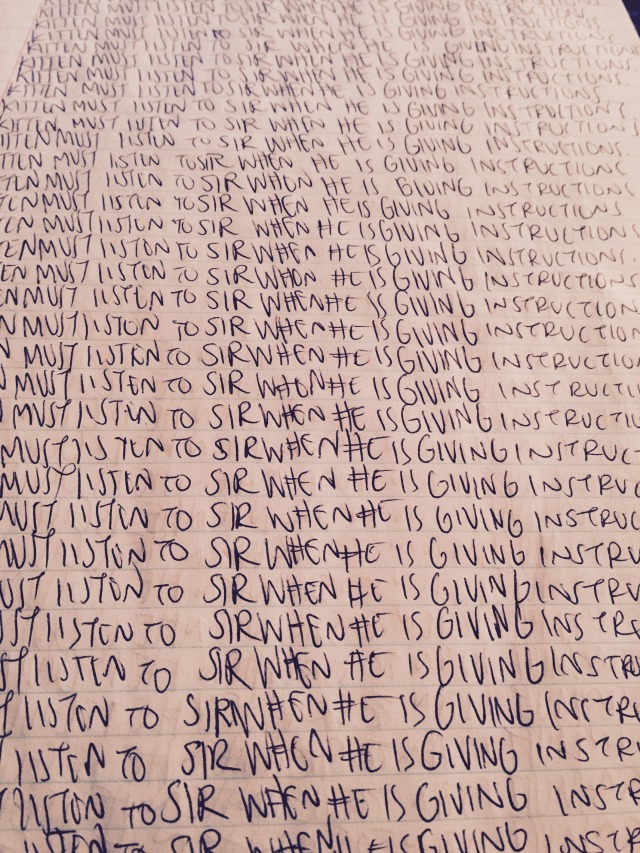 KITTEN MUST LISTEN TO SIR WHEN HE IS GIVING INSTRUCTIONS
KITTEN MUST LISTEN TO SIR WHEN HE IS GIVING INSTRUCTIONS
KITTEN MUST LISTEN TO SIR WHEN HE IS GIVING INSTRUCTIONS
KITTEN MUST LISTEN TO SIR WHEN HE IS GIVING INSTRUCTIONS
KITTEN MUST LISTEN TO SIR WHEN HE IS GIVING INSTRUCTIONS
ITTEN MUST LISTEN TO SIR WHEN HE IS GIVING INSTRUCTIONS
TTEN MUST LISTEN TO SIR WHEN HE IS GIVING INSTRUCTIONS
TEN MUST LISTEN TO SIR WHEN HE IS GIVING INSTRUCTIONS
TEN MUST LISTEN TO SIR WHEN HE IS GIVING INSTRUCTIONS
EN MUST LISTEN TO SIR WHEN HE IS GIVING INSTRUCTIONS
EN MUST LISTEN TO SIR WHEN HE IS GIVING INSTRUCTIONS
EN MUST LISTEN TO SIR WHEN HE IS GIVING INSTRUCTIONS
EN MUST LISTEN TO SIR WHEN HE IS GIVING INSTRUCTION
N MUST LISTEN TO SIR WHEN HE IS GIVING INSTRUCTION
N MUST LISTEN TO SIR WHEN HE IS GIVING INSTRUCTION
MUST LISTEN TO SIR WHEN HE IS GIVING INSTRUCTI
MUST LISTEN TO SIR WHEN HE IS GIVING INSTRUCTI
MUST LISTEN TO SIR WHEN HE IS GIVING INSTRUC
MUST LISTEN TO SIR WHEN HE IS GIVING INSTRUC
MUST LISTEN TO SIR WHEN HE IS GIVING INSTRUC
MUST LISTEN TO SIR WHEN HE IS GIVING INSTRU
UST LISTEN TO SIR WHEN HE IS GIVING INSTRU
ST LISTEN TO SIR WHEN HE IS GIVING INSTRU
ST LISTEN TO SIR WHEN HE IS GIVING INSTRU
T LISTEN TO SIR WHEN HE IS GIVING INSTRU
LISTEN TO SIR WHEN HE IS GIVING INSTRU
LISTEN TO SIR WHEN HE IS GIVING INSTR
LISTEN TO SIR WHEN HE IS GIVING INSTR